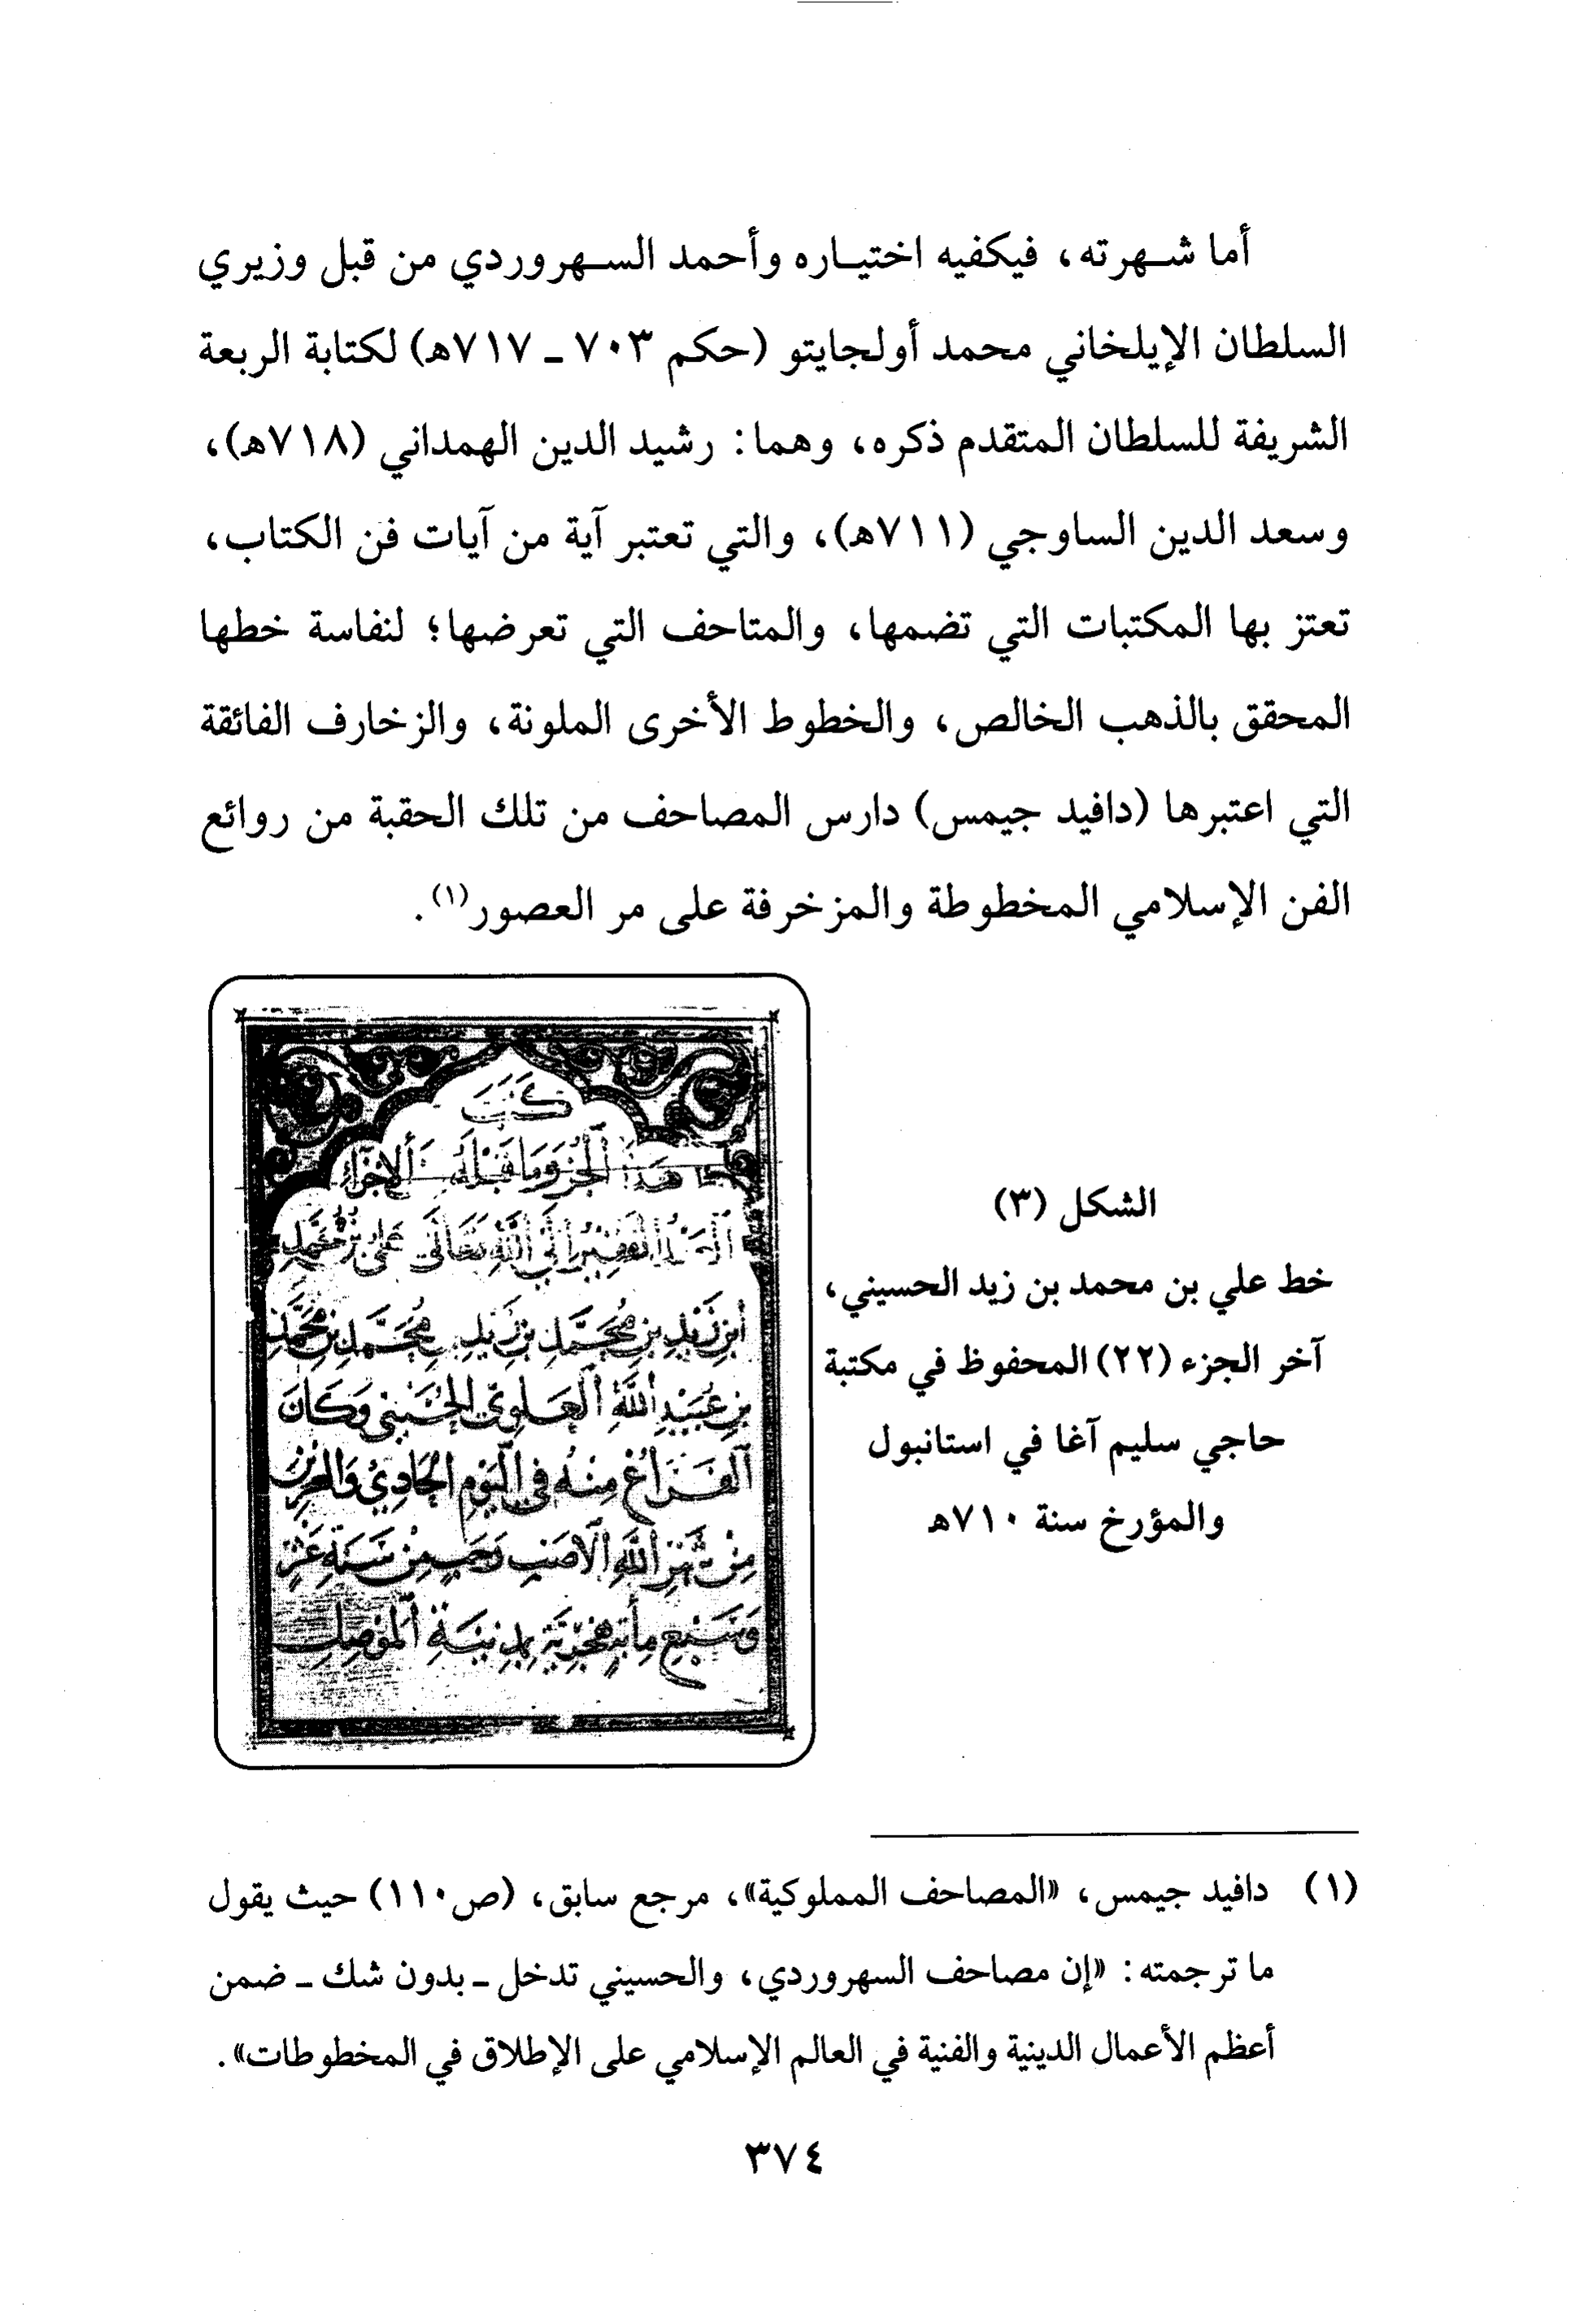 أما شهرته، فيكفيه اختياره وأحمد السهروردي من قبل وزيري
السلطان الإيلخاني محمد أولجايتو (حكم ٧٠٣ - ٧١٧هـ) لكتابة الربعة
الشريفة للسلطان المتقدم ذكره، وهما: رشيد الدين الهمداني (٧١٨هـ)،
وسعد الدين الساوجي (٧١١هـ)، والتي تعتبر آية من آيات فن الكتاب،
تعتز بها المكتبات التي تضمها، والمتاحف التي تعرضها؛ لنفاسة خطها
المحقق بالذهب الخالص، والخطوط الأخرى الملونة، والزخارف الفائقة
التي اعتبرها (دافيد جيمس) دارس المصاحف من تلك الحقبة من روائع
الفن الإسلامي المخطوطة والمزخرفة على مر العصور(١).
كتب
هذا الجزو وما قبله الأجزاء
العبد الفقير إلى الله تعالى علي بن محمد
ابن زيد بن محمد بن زيد بن محمد بن محمد
بن عبيد الله العلوي الحسيني وكان
الفراغ منه في اليوم الحادي والعشرين
من شهر الله الأصب رجب من سنة عشر
وسبع مأية هجرية بمدينة الموصل
الشكل (٣)
خط علي بن محمد بن زيد الحسيني،
آخر الجزء (٢٢) المحفوظ في مكتبة
حاجي سليم آغا في استانبول
والمؤرخ سنة ٧١٠هـ
(١) دافيد جيمس، «المصاحف المملوكية»، مرجع سابق، (ص١١٠) حيث يقول
ما ترجمته: «إن مصاحف السهروردي، والحسيني تدخل - بدون شك - ضمن
أعظم الأعمال الدينية والفنية في العالم الإسلامي على الإطلاق في المخطوطات».
٣٧٤